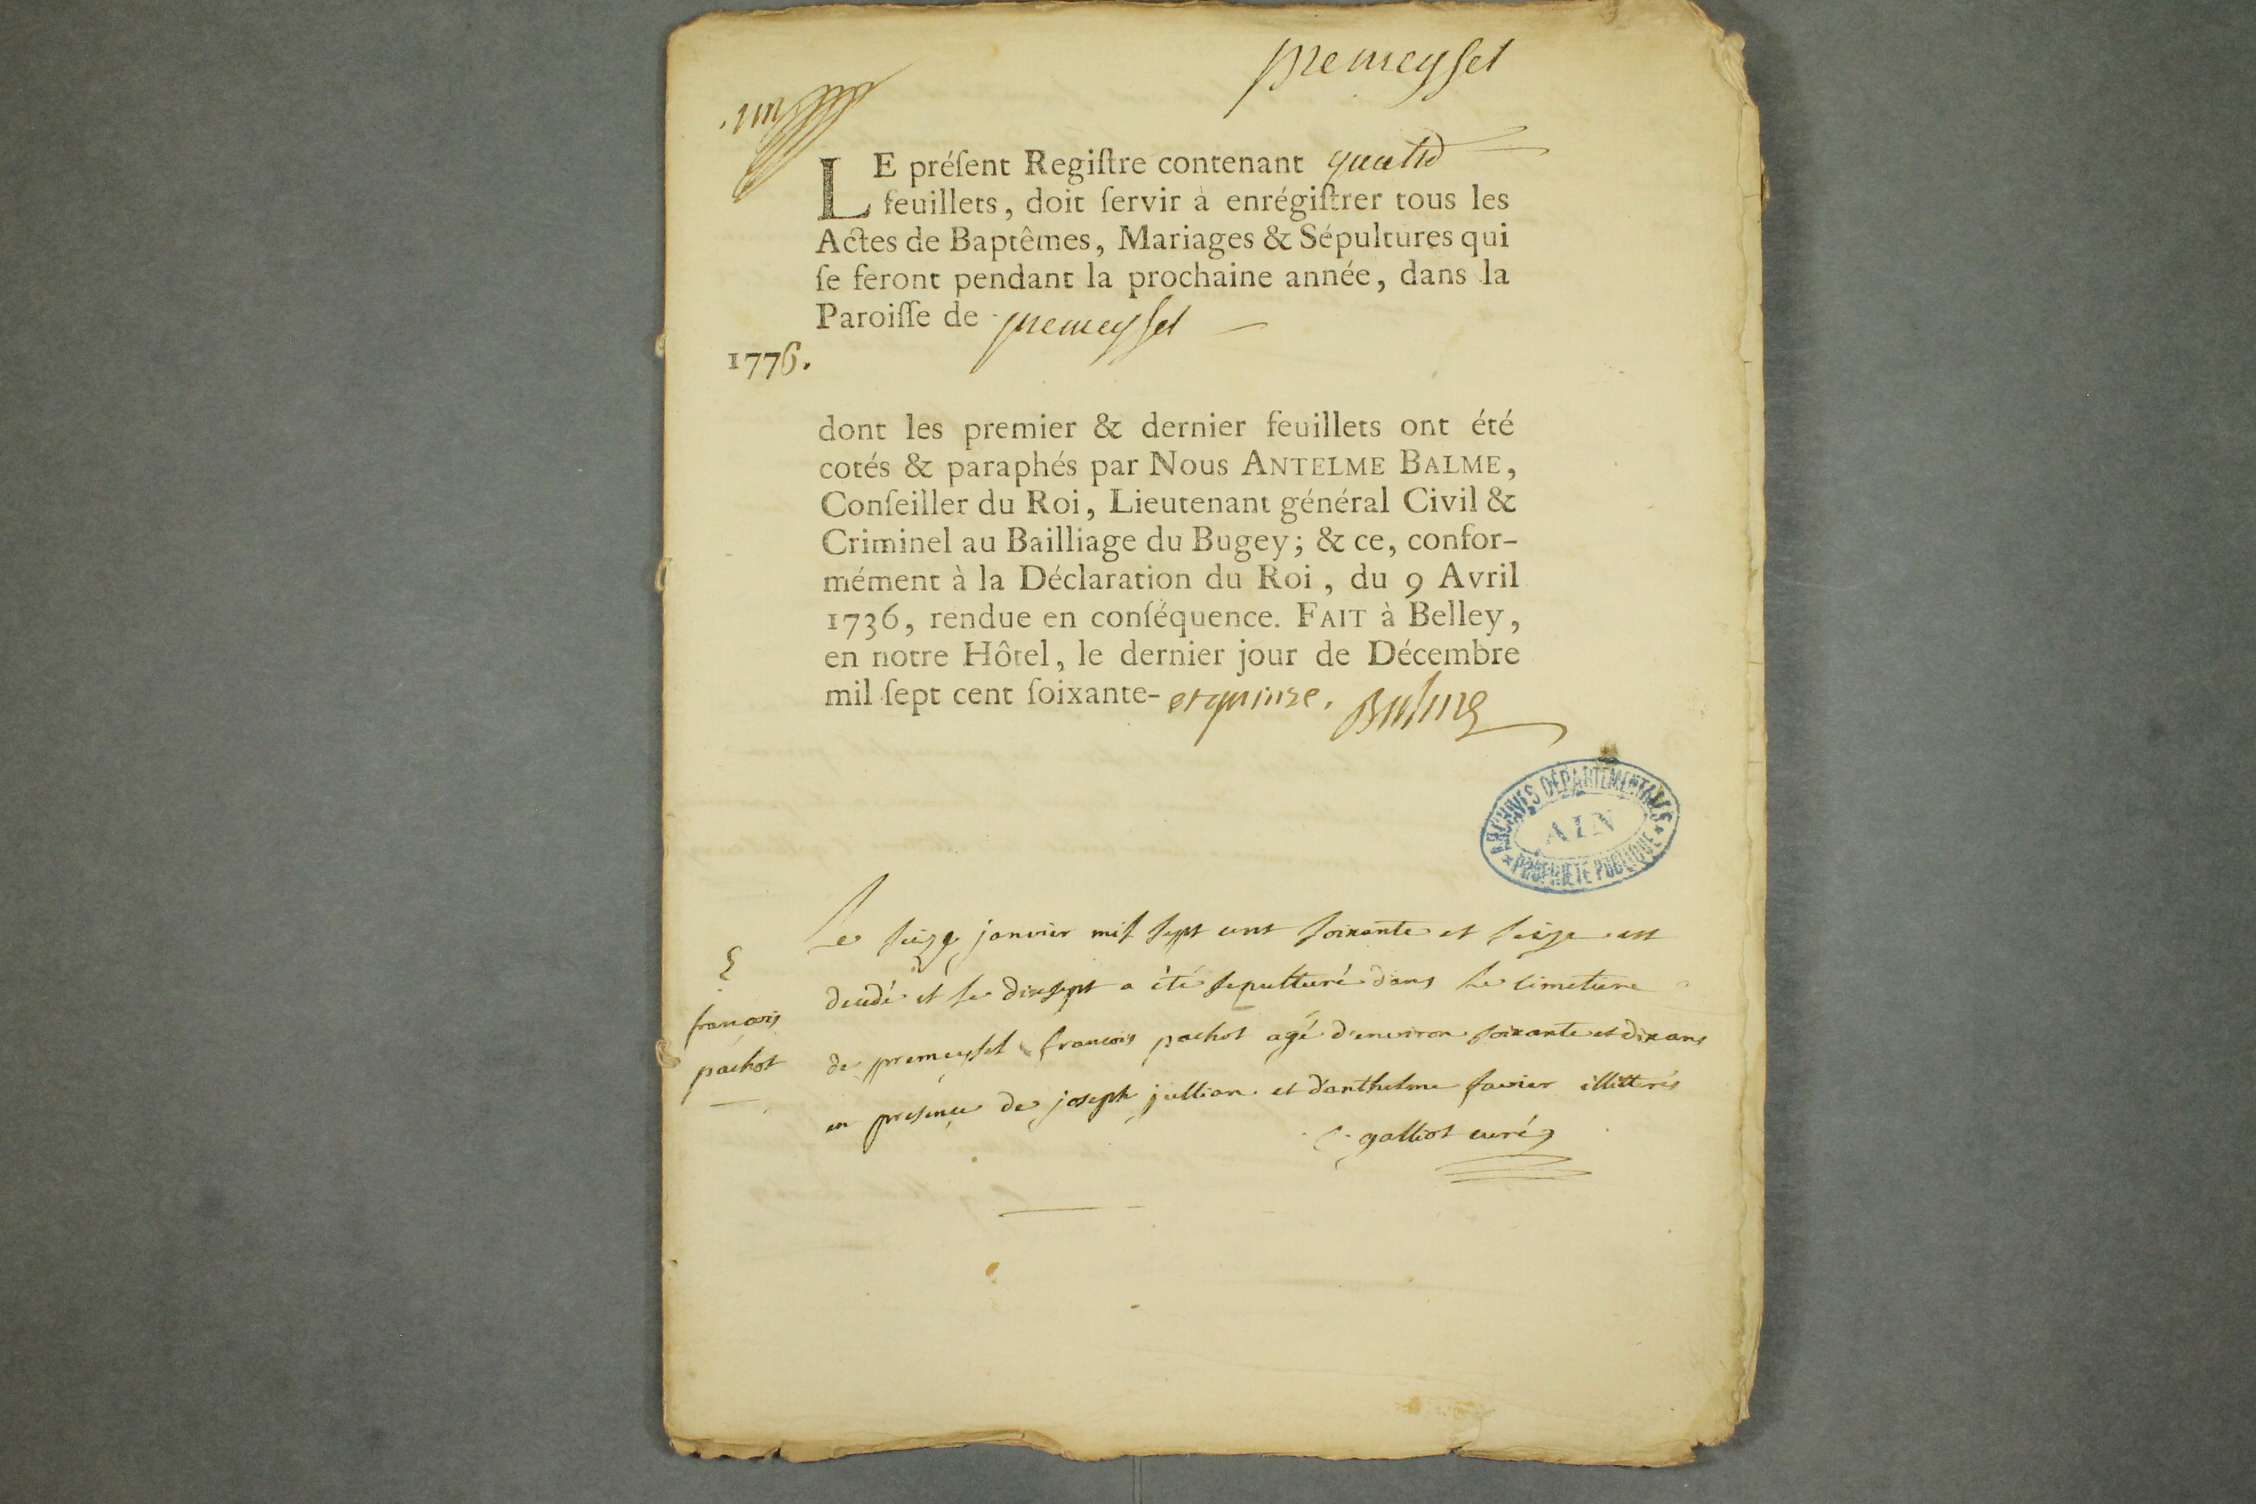 premeysel
un
LE préſent Regiſtre contenant quatre
feuillets, doit ſervir à enrégiſtrer tous les
Actes de Baptêmes, Mariages & Sépultures qui
ſe feront pendant la prochaine année, dans la
Paroiſſe de premeysel
1776.
dont les premier & dernier feuillets ont été
cotés & paraphés par Nous ANTELME BALME,
Conſeiller du Roi, Lieutenant général Civil &
Criminel au Bailliage du Bugey; & ce, confor-
mément à la Déclaration du Roi, du 9 Avril
1736, rendue en conſéquence. FAIT à Belley,
en notre Hôtel, le dernier jour de Décembre
mil ſept cent ſoixante- et quinze. Balme
ARCHIVES DÉPARTEMENTALES
AIN
PROPRIÉTÉ PUBLIQUE
Le seize janvier mil sept cent soixante et seize est
decedé et le dixsept a été sepulturé dans le cimetiere
de premeysel françois pachot agé d'environ soixante et dix ans
en presence de joseph jullian et d'anthelme favier illitterés
galliot curé
S
françois
pachot